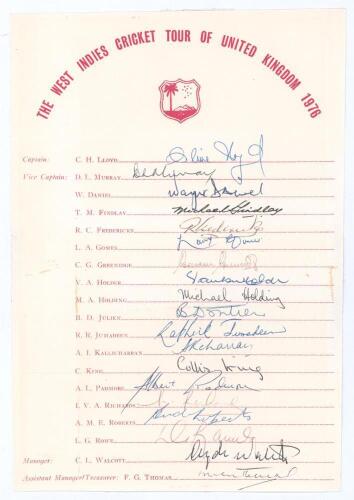 THE WEST INDIES CRICKET TOUR OF UNITED KINGDOM 1976
Captain: C. H. LLOYD Clive Lloyd
Vice Captain: D. L. MURRAY D L Murray
W. DANIEL Wayne Daniel
T. M. FINDLAY Michael Findlay
R. C. FREDERICKS R Fredericks
L. A. GOMES Larry Gomes
C. G. GREENIDGE Gordon Greenidge
V. A. HOLDER Vanburn Holder
M. A. HOLDING Michael Holding
B. D. JULIEN B D Julien
R. R. JUMADEEN Raphick Jumadeen
A. I. KALLICHARRAN
C. KING Collis King
A. L. PADMORE Albert Padmore
I. V. A. RICHARDS
A. M. E. ROBERTS Andy Roberts
L. G. ROWE
Manager: C. L. WALCOTT Clyde Walcott
Assistant Manager/Treasurer: F. G. THOMAS